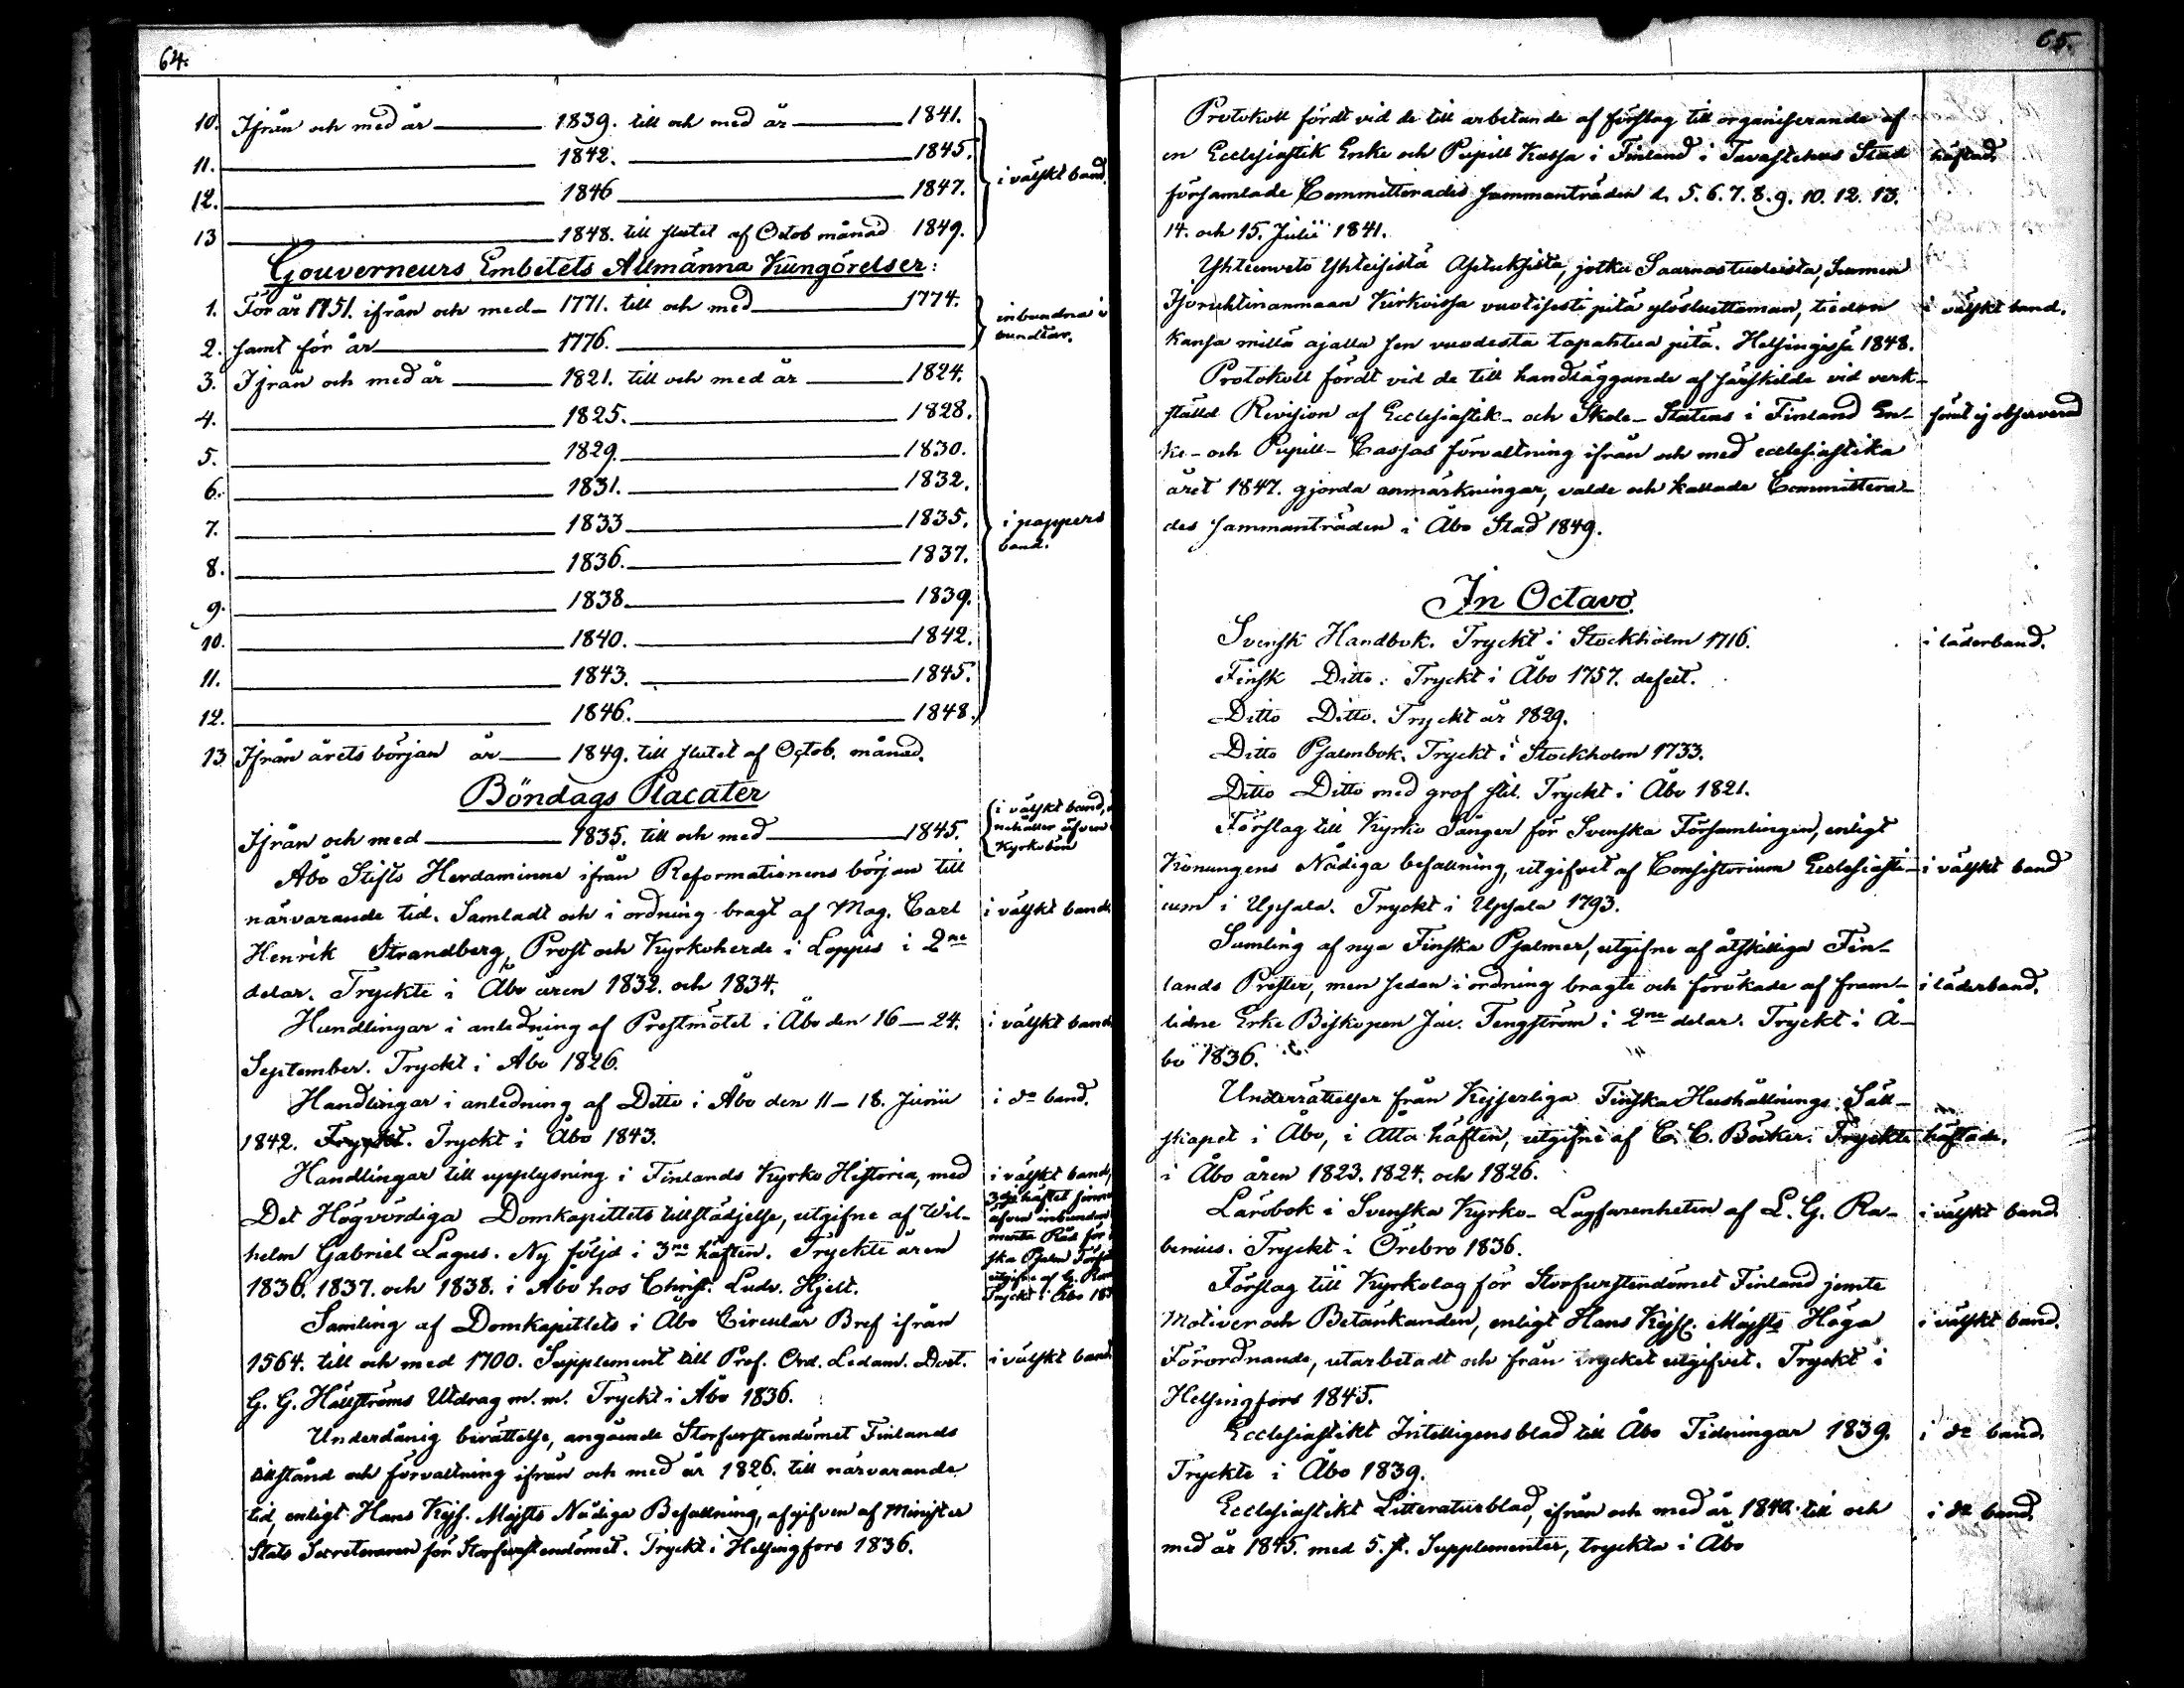 64.
10. Ifrån och med år 1839. till och med år 1841.
11. 1842. 1845.
12. 1846 1847. i välskt band.
13 1848. till slutet af Octob månad 1849.
Gouverneurs Embetets Allmänna Kungörelser:
1. För år 1751. ifrån och med 1771. till och med 1774. inbundna i
2. samt för år 1776. bundtar.
3. Ifrån och med år 1821. till och med år 1824.
4. 1825. 1828.
5. 1829. 1830.
6. 1831. 1832.
7. 1833 1835. i pappers
band.
8. 1836. 1837.
9. 1838 1839.
10. 1840. 1842.
11. 1843. 1845.
12. 1846. 1848.
13 Ifrån årets början år 1849. till slutet af Octob. månad.
Böndags Placater
Ifrån och med 1835. till och med 1845. i välskt band,
nehåller äfven
Kyrkobön
Åbo Stifts Herdaminne ifrån Reformationens början till
närvarande tid. Samladt och i ordning bragt af Mag. Carl i välskt band
Henrik Strandberg, Prost och Kyrkoherde i Loppis i 2ne
delar. Tryckte i Åbo åren 1832. och 1834.
Handlingar i anledning af Prestmötet i Åbo den 16–24. i välskt band
September. Tryckt i Åbo 1826.
Handlingar i anledning af Ditto i Åbo den 11–18. Junii i do band.
1842. Tryckt. Tryckt i Åbo 1843.
Handlingar till upplysning i Finlands Kyrko Historia, med i välskt band,
Det Högvördiga Domkapitlets tillstädjelse, utgifne af Wil- 3dje häftet
äfven inbundet
helm Gabriel Lagus. Ny följd i 3ne häften. Tryckte åren
ska Psalm
1836. 1837. och 1838. i Åbo hos Christ. Ludv. Hjelt. utgifne af G.
Tryckt i Åbo
Samling af Domkapitlets i Åbo Circulär Bref ifrån
1564. till och med 1700. Supplement till Prof. Ord. Ledam. Doct. i välskt band
G. G. Hällströms Utdrag m. m. Tryckt i Åbo 1836.
Underdånig berättelse, angående Storfurstendömet Finlands
tillstånd och förvaltning ifrån och med år 1826. till närvarande
tid, enligt Hans Kejs. Majsts Nådiga Befallning, afgifven af Minister
Stats Secreteraren för Storfurstendömet. Tryckt i Helsingfors 1836.
65.
Protokoll fördt vid de till arbetande af förslag till organiserande af
en Ecclesiastik Enke och Pupill Kassa i Finland i Tavastehus Stad häftad.
församlade Committerades sammanträden d. 5. 6. 7. 8. 9. 10. 12. 13.
14. och 15. Julii 1841.
Yhteenveto Yhteisistä Asetuksista, jotka Saarnastuoleista, Suomen
Isoruhtinanmaan Kirkoissa vuotisesti pitä ylösluettaman, tiedon i välskt band.
kansa millä ajalla sen vuodesta tapahtua pitä. Helsingissä 1848.
Protokoll fördt vid de till handläggande af särskilde vid verk-
ställd Revision af Ecclesiastik- och Skole-Statens i Finland En- förut ej observerad
ke- och Pupill-Cassas förvaltning ifrån och med ecclesiastika
året 1847. gjorda anmärkningar, valde och kallade Committera-
des sammanträden i Åbo Stad 1849.
In Octavo
Svensk Handbok. Tryckt i Stockholm 1716. i läderband.
Finsk Ditto: Tryckt i Åbo 1757. defect.
Ditto Ditto. Tryckt år 1829.
Ditto Psalmbok. Tryckt i Stockholm 1733.
Ditto Ditto med grof stil. Tryckt i Åbo 1821.
Förslag till Kyrko Sånger för Svenska Församlingen, enligt
Konungens Nådiga befallning, utgifvet af Consistorium Ecclesiasti- i välskt band
cum i Upsala. Tryckt i Upsala 1793.
Samling af nya Finska Psalmer, utgifne af åtskilliga Fin-
lands Prester, men sedan i ordning bragte och förökade af fram- i läderband.
lidne Erke Biskopen Jac. Tengström i 2ne delar. Tryckt i Å-
bo 1836.
Underrättelser från Kejserliga Finska Hushållnings Säll-
skapet i Åbo, i Åtta häften, utgifne af C. C. Böcker. Tryckte häftade.
i Åbo åren 1823. 1824. och 1826.
Lärobok i Svenska Kyrko-Lagfarenheten af L. G. Ra- i välskt band.
benius. Tryckt i Örebro 1836.
Förslag till Kyrkolag för Storfurstendömet Finland jemte
Motiver och Betänkanden, enligt Hans Kejs. Majsts Höga i välskt band.
Förordnande, utarbetadt och från trycket utgifvet. Tryckt i
Helsingfors 1845.
Ecclesiastikt Intelligensblad till Åbo Tidningar 1839. i do band.
Tryckte i Åbo 1839.
Ecclesiastikt Litteraturblad, ifrån och med år 1840. till och i do band.
med år 1845. med 5. st. Supplementer, tryckta i Åbo